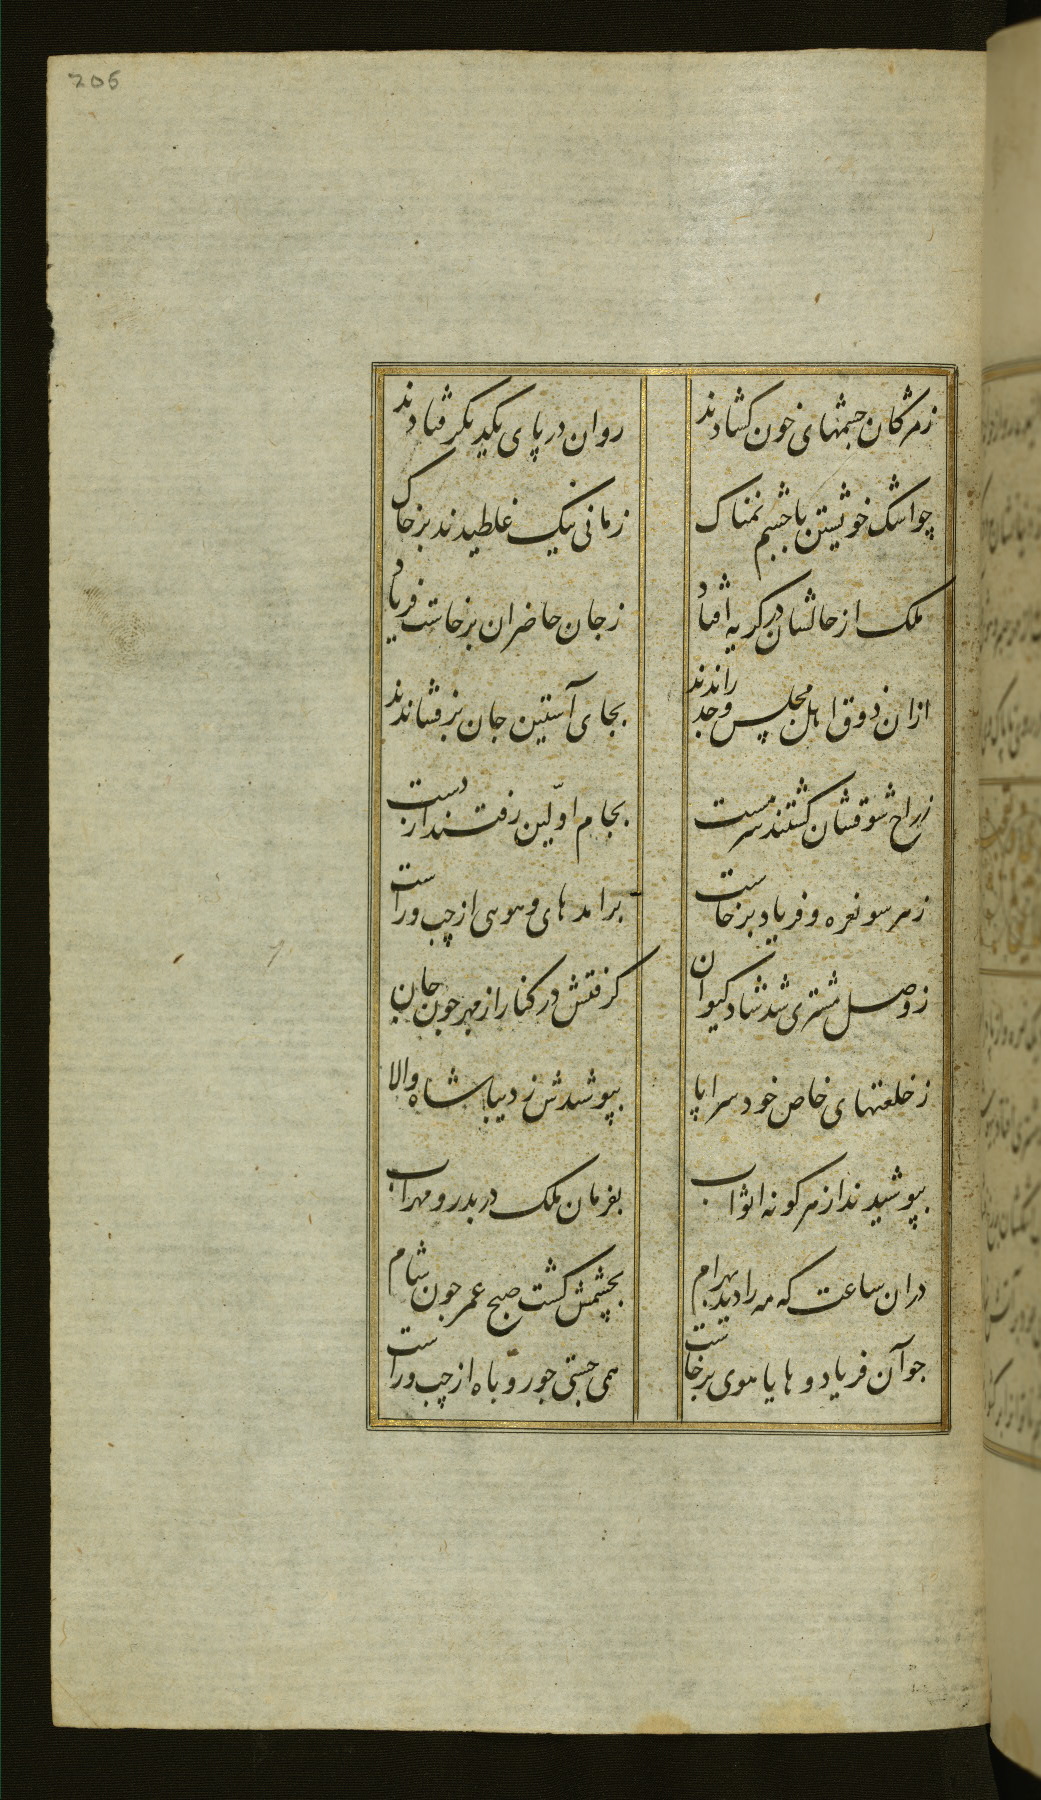 206
زمژکان چشمهای خون کشادند روان در پای یکدیکر فتادند
چو اشک خویشتن با چشم نمناک زمانی نیک غلطیدند بر خاک
ملک از حالشان در کریه افتاد ز جان حاضران برخاست فریاد
ازان ذوق اهل مجلس وجد راندند بجای آستین جان برفشاندند
ز راح شوقشان کشتند سرمست بجام اوّلین رفتند از دست
ز هر سو نعره و فریاد برخاست برامد های و هوی از چپ و راست
ز وصل مشتری شد شاد کیوان کرفتش در کنار از مهر چون جان
ز خلعتهای خاص خود سراپا بپوشیدش ز دیبا شاه والا
بپوشیدند از هر کونه اثواب بفرمان ملک در بدر و مهراب
دران ساعت که مه را دید بهرام بچشمش کشت صبح عمر چون شام
جو آن فریاد و هایا هوی برخاست همی جستی جو روباه از چپ و راست